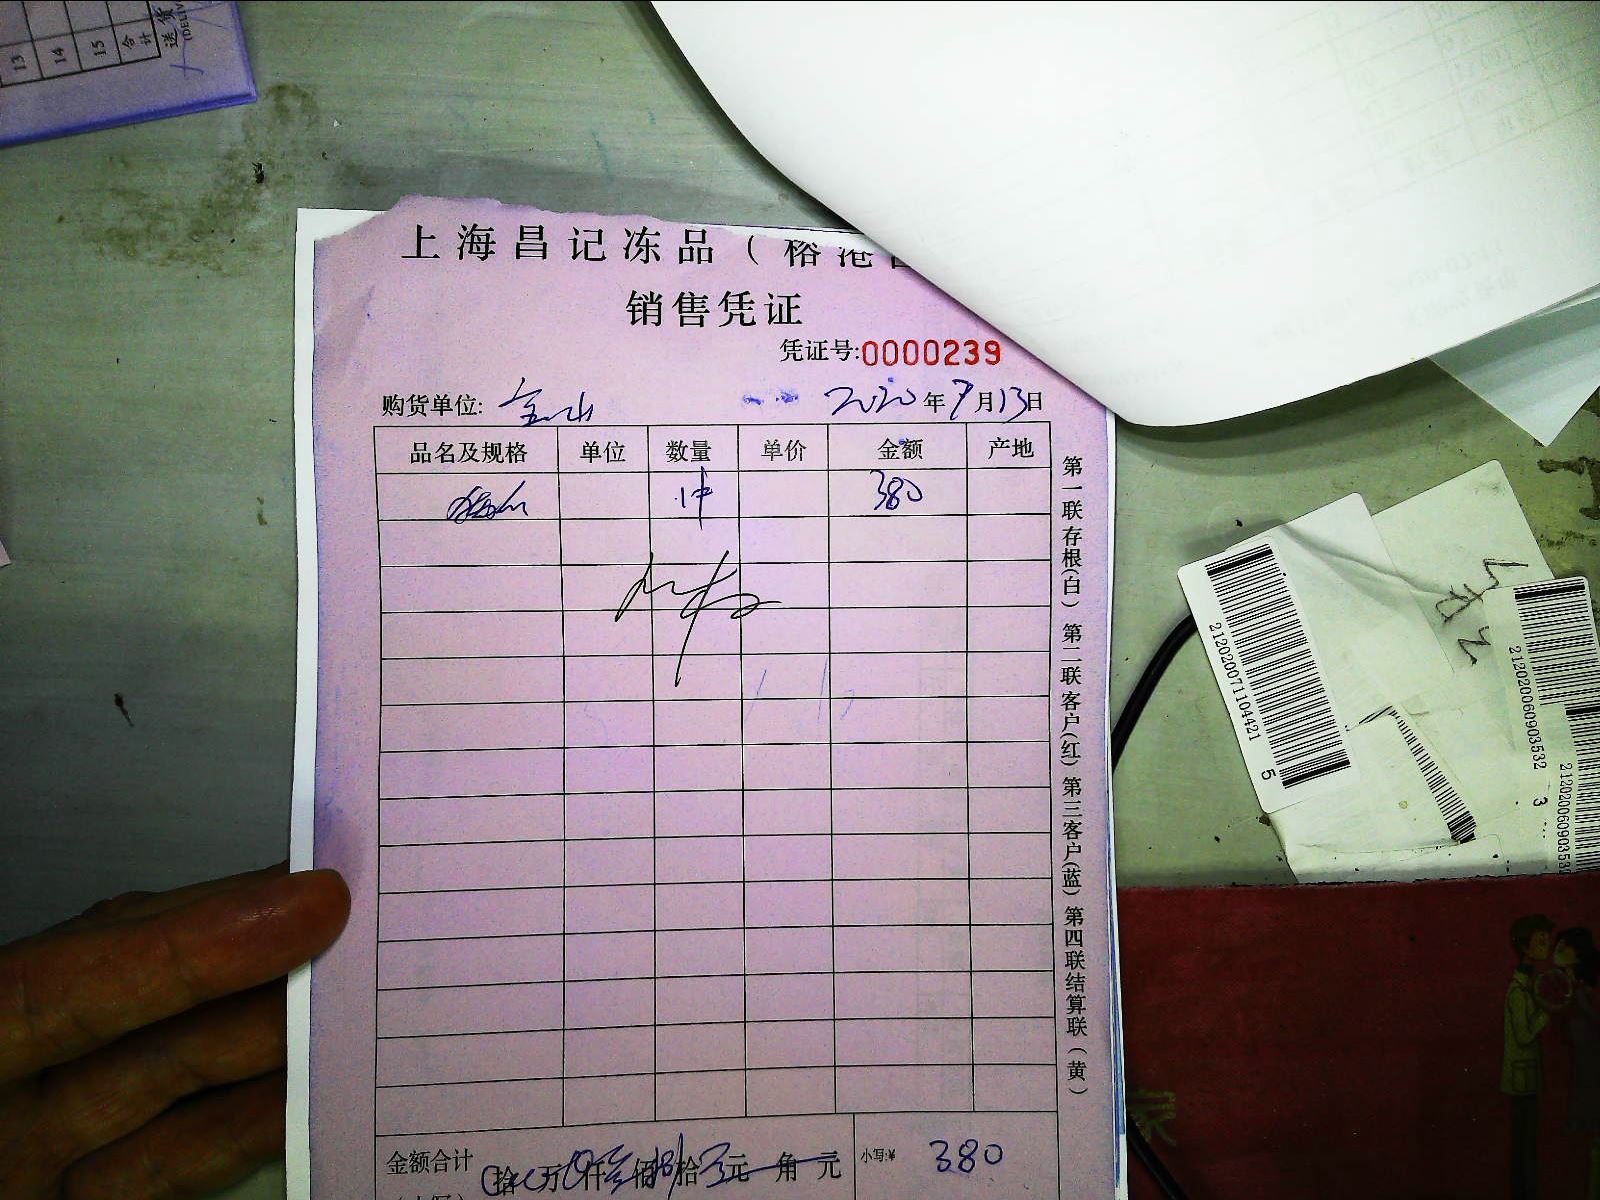 13
14
15
合计
送货
上海昌记冻品（榕港
销售凭证
凭证号:0000239
购货单位: 金山 2020年7月13日
品名及规格 单位 数量 单价 金额 产地
1件 380
第一联存根(白) 第二联客户(红) 第三客户(蓝) 第四联结算联(黄)
金额合计 拾 万 仟 佰 拾 元 角 元 小写:¥ 380
212020071104421 5
212020060903532 3